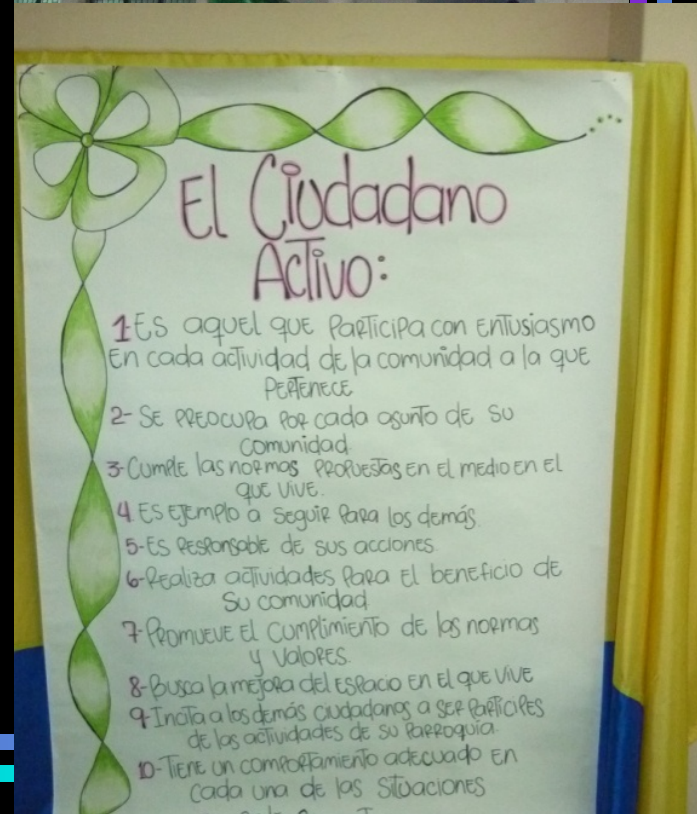 El Ciudadano
Activo:
1-Es aquel que participa con entusiasmo
en cada actividad de la comunidad a la que
pertenece
2- Se preocupa por cada asunto de su
comunidad.
3-Cumple las normas propuestas en el medio en el
que vive.
4 Es ejemplo a seguir para los demás.
5-Es responsable de sus acciones
6-Realiza actividades para el beneficio de
su comunidad
7-Promueve el cumplimiento de las normas
y valores.
8-Busca la mejora del espacio en el que vive
9-Incita a los demás ciudadanos a ser partícipes
de las actividades de su parroquia.
10-Tiene un comportamiento adecuado en
cada una de las situaciones